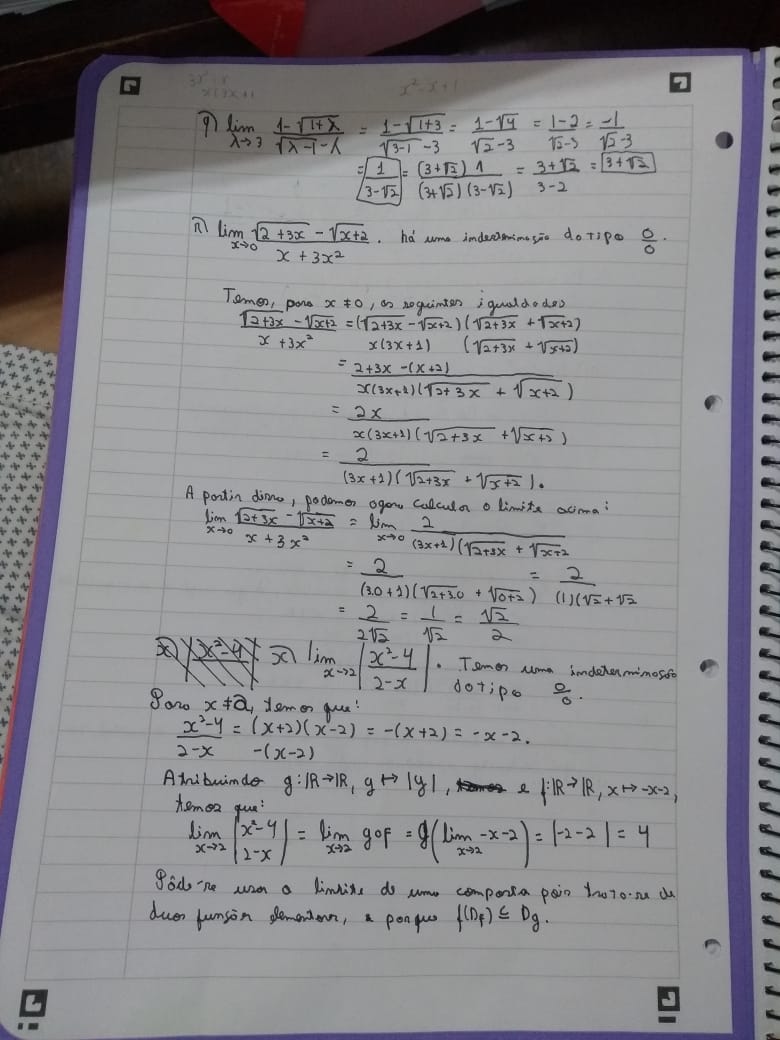 3x²+x
x(3x+1
x²-x+1
q) lim λ→3 (1-√(1+λ))/(√(λ-1)-λ) = (1-√(1+3))/(√(3-1)-3) = (1-√4)/(√2-3) = (1-2)/(√2-3) = -1/(√2-3)
= 1/(3-√2) = (3+√2) 1/((3+√2)(3-√2)) = (3+√2)/(3-2) = 3+√2
r) lim x→0 (√(2+3x) - √(x+2))/(x+3x²). há uma indeterminação do tipo 0/0.
Temos, para x ≠ 0, as seguintes igualdades
(√(2+3x) - √(x+2))/(x+3x²) = (√(2+3x) - √(x+2))(√(2+3x) + √(x+2))/(x(3x+1) (√(2+3x) + √(x+2)))
= (2+3x-(x+2))/(x(3x+1)(√(2+3x) + √(x+2)))
= 2x/(x(3x+1)(√(2+3x) + √(x+2)))
= 2/((3x+1)(√(2+3x) + √(x+2))).
A partir disso, podemos agora calcular o limite acima:
lim x→0 (√(2+3x) - √(x+2))/(x+3x²) = lim x→0 2/((3x+1)(√(2+3x) + √(x+2)
= 2/((3.0+1)(√(2+3.0) + √(0+2))) = 2/((1)(√2+√2
= 2/(2√2) = 1/√2 = √2/2
x) |x²-4 x) lim x→2 |(x²-4)/(2-x)|. Temos uma indeterminação
do tipo 0/0.
Para x ≠ 2, temos que:
(x²-4)/(2-x) = (x+2)(x-2)/(-(x-2)) = -(x+2) = -x-2.
Atribuindo g:ℝ→ℝ, y ↦ |y|, e f:ℝ→ℝ, x ↦ -x-2,
temos que:
lim x→2 |(x²-4)/(2-x)| = lim x→2 gof = g(lim x→2 -x-2) = |-2-2| = 4
Pôde-se usar o limite de uma composta pois trata-se de
duas e porque f(Df) ⊆ Dg.